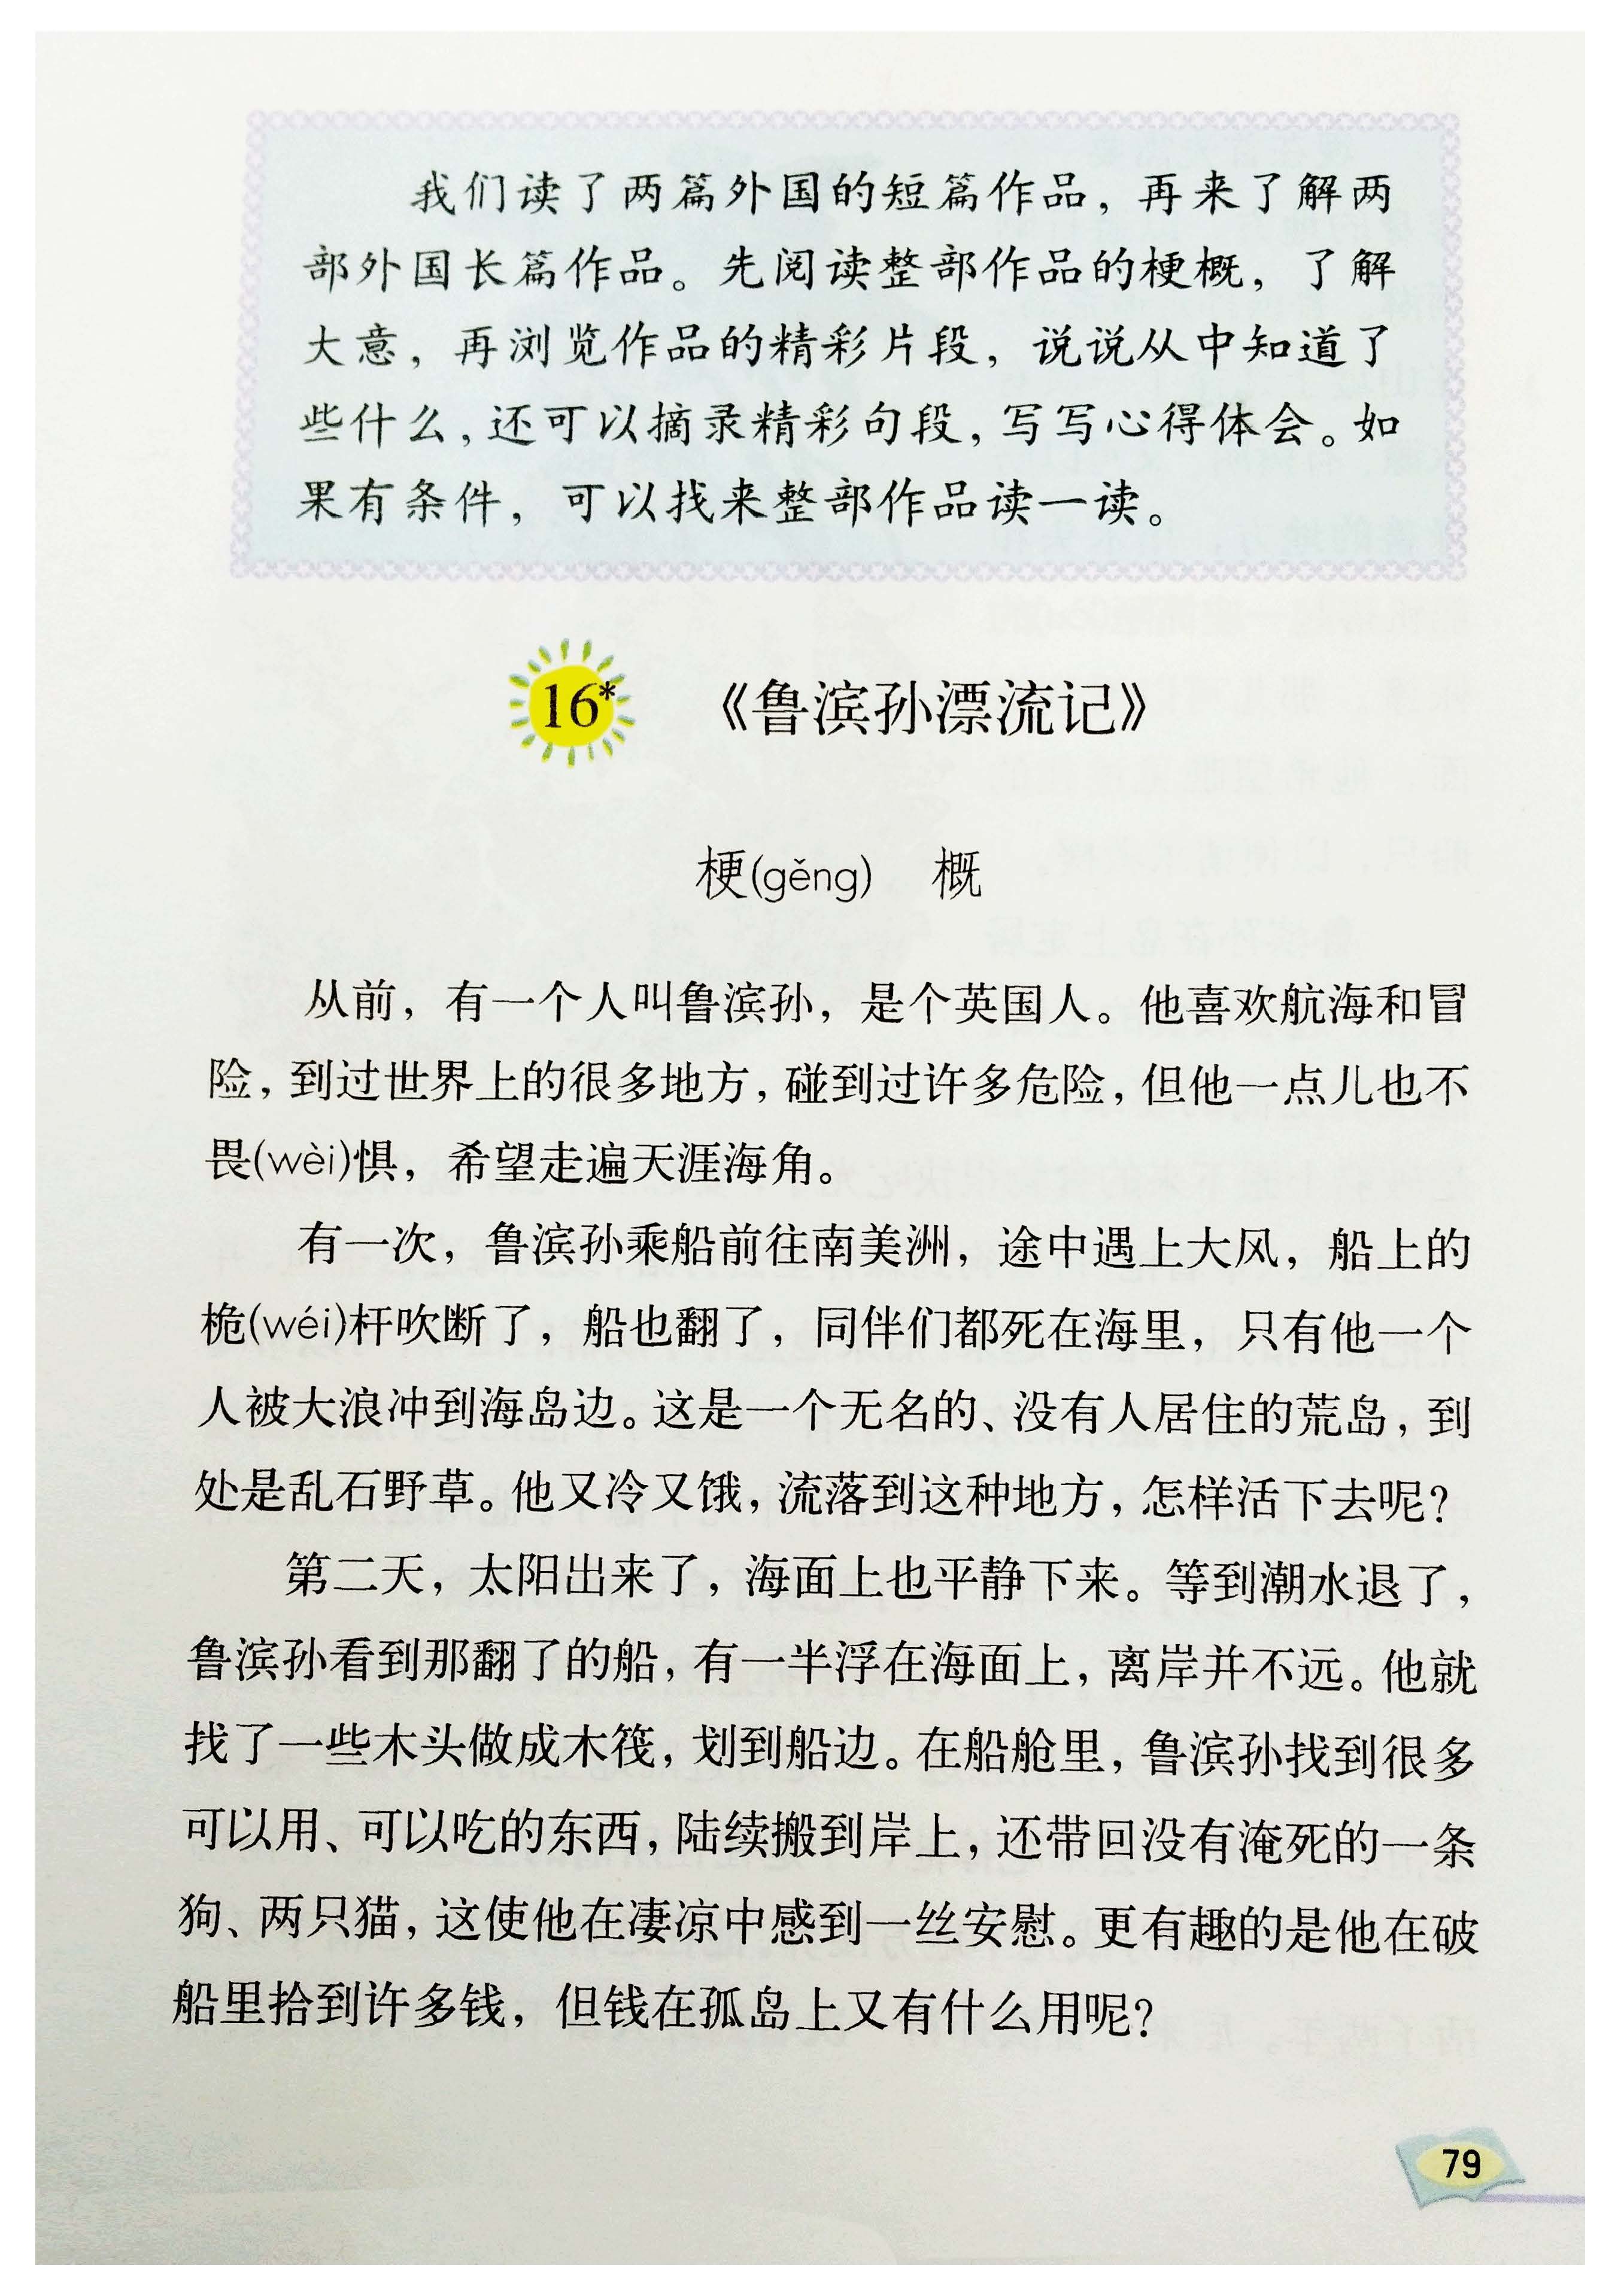 我们读了两篇外国的短篇作品，再来了解两
部外国长篇作品。先阅读整部作品的梗概，了解
大意，再浏览作品的精彩片段，说说从中知道了
些什么，还可以摘录精彩句段，写写心得体会。如
果有条件，可以找来整部作品读一读。
16* 《鲁滨孙漂流记》
梗(gěng) 概
从前，有一个人叫鲁滨孙，是个英国人。他喜欢航海和冒
险，到过世界上的很多地方，碰到过许多危险，但他一点儿也不
畏(wèi)惧，希望走遍天涯海角。
有一次，鲁滨孙乘船前往南美洲，途中遇上大风，船上的
桅(wéi)杆吹断了，船也翻了，同伴们都死在海里，只有他一个
人被大浪冲到海岛边。这是一个无名的、没有人居住的荒岛，到
处是乱石野草。他又冷又饿，流落到这种地方，怎样活下去呢？
第二天，太阳出来了，海面上也平静下来。等到潮水退了，
鲁滨孙看到那翻了的船，有一半浮在海面上，离岸并不远。他就
找了一些木头做成木筏，划到船边。在船舱里，鲁滨孙找到很多
可以用、可以吃的东西，陆续搬到岸上，还带回没有淹死的一条
狗、两只猫，这使他在凄凉中感到一丝安慰。更有趣的是他在破
船里拾到许多钱，但钱在孤岛上又有什么用呢？
79